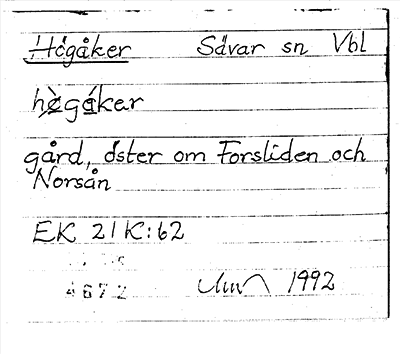 Högåker Sävar sn Vbl
hògáker
gård, öster om Forsliden och
Norsån
EK 21K:62
4672 1992